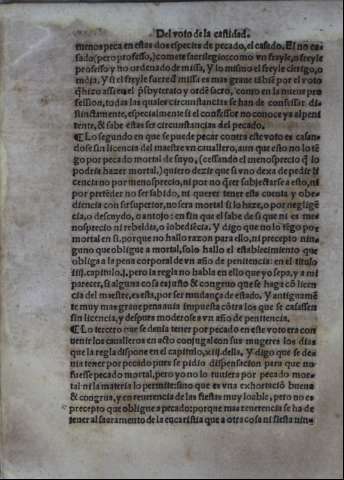 Del voto de la castidad.
menos peca en estas dos especies de pecado, el casado. El no ca-
sado (pero professo,) comete sacrilegio: como vn freyle, o freyle
professo y no ordenado de missa, Y lo mismo el freyle clerigo, o
mõja. Y si el freyle fuere d missa es mas graue tãbiẽ por el voto
q̃ hizo assi en el p̃sbyterato y ordẽ sacro, como en la nueua pro
fession, todas las quales circunstancias se han de confessar di-
stinctamente, especialmente si el confessor no conoce ya al peni
tente, & sabe estas sir circunstancias del pecado.
¶ Lo segundo en que se puede pecar contra este voto es casan-
dose sin licencia del maestre vn cauallero, aun que esto no lo tẽ
go por pecado mortal de suyo, (cessando el menosprecio q̃ lo
podria hazer mortal,) quiero dezir que si vno dexa de pedir li
cencia no por menosprecio, ni por no q̃rer subjectarse a esto, ni
por pretender no ser sabido, ni querer tener esta cuenta y obe-
diencia con su superior, no sera mortal si lo haze, o por negligẽ
cia, o descuydo, o antojo: en fin que el sabe de si que ni es me-
nosprecio ni rebeldia, o inobediẽcia. Y digo que no lo tẽgo por
mortal en si, porque no hallo razon para ello, ni precepto nin-
guno que obligue a mortal, solo hallo el establecimiento que
obliga a la pena corporal de vn año de penitencia: en el titulo
iiij. capitulo, j, pero la regla no habla en ello que yo sepa, y a mi
parecer, si alguna cosa es justo & congruo que se haga cõ licen-
cia del maestre, es esta, por ser mudança de estado. Y antiguamẽ
te muy mas graue pena auia impuesta cõtra los que se casassen
sin licencia, y despues moderose a vn año de penitencia.
¶ Lo tercero que se deuia tener por pecado en este voto era con
uenir los caualleros en acto conjugal con sus mugeres los dias
que la regla dispone en el capitulo, xiij. della, Y digo que se de-
uia tener por pecado pues se pidio dispensacion para que no
fuesse pecado mortal, pero yo no lo tuuiera por pecado mor-
tal ni la materia lo permite: sino que es vna exhortaciõ buena
& congrua, y en reuerencia de las fiestas muy loable, pero no es
precepto que obligue a pecado: porque mas reuerencia se ha de
tener al sacramento de la eucaristia que a otra cosa ni fiesta nin-